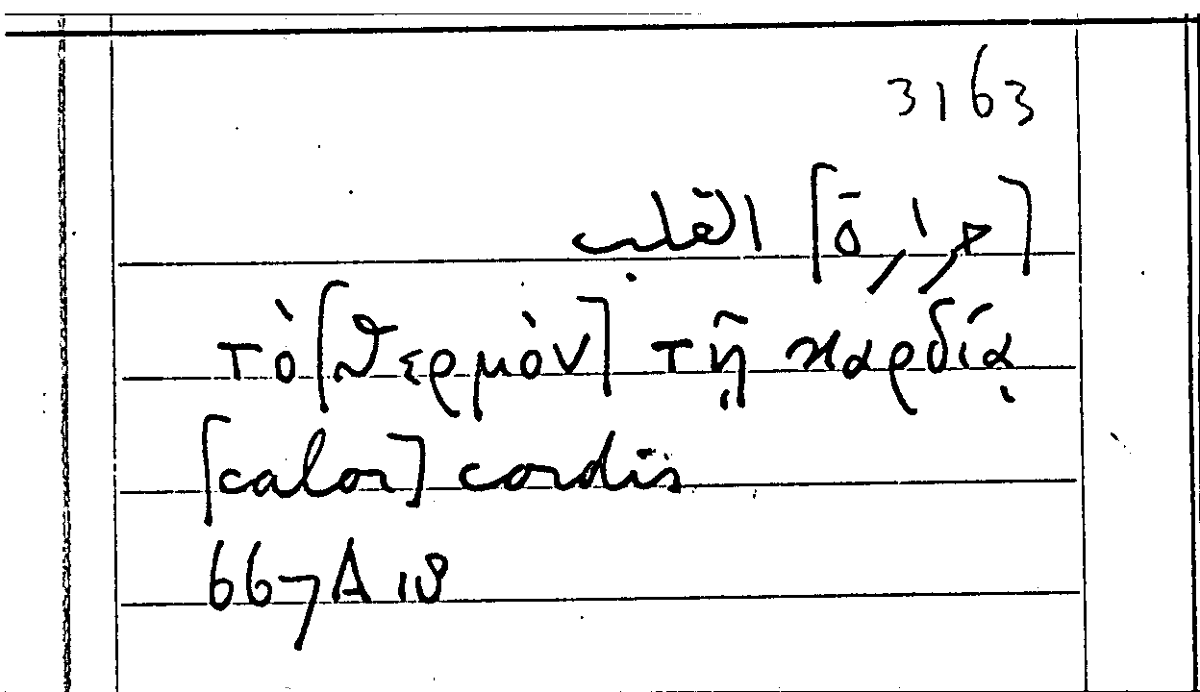 3163
[حرارة] القلب
τὸ [θερμὸν] τῇ καρδίᾳ
[calor] cordis
667A18